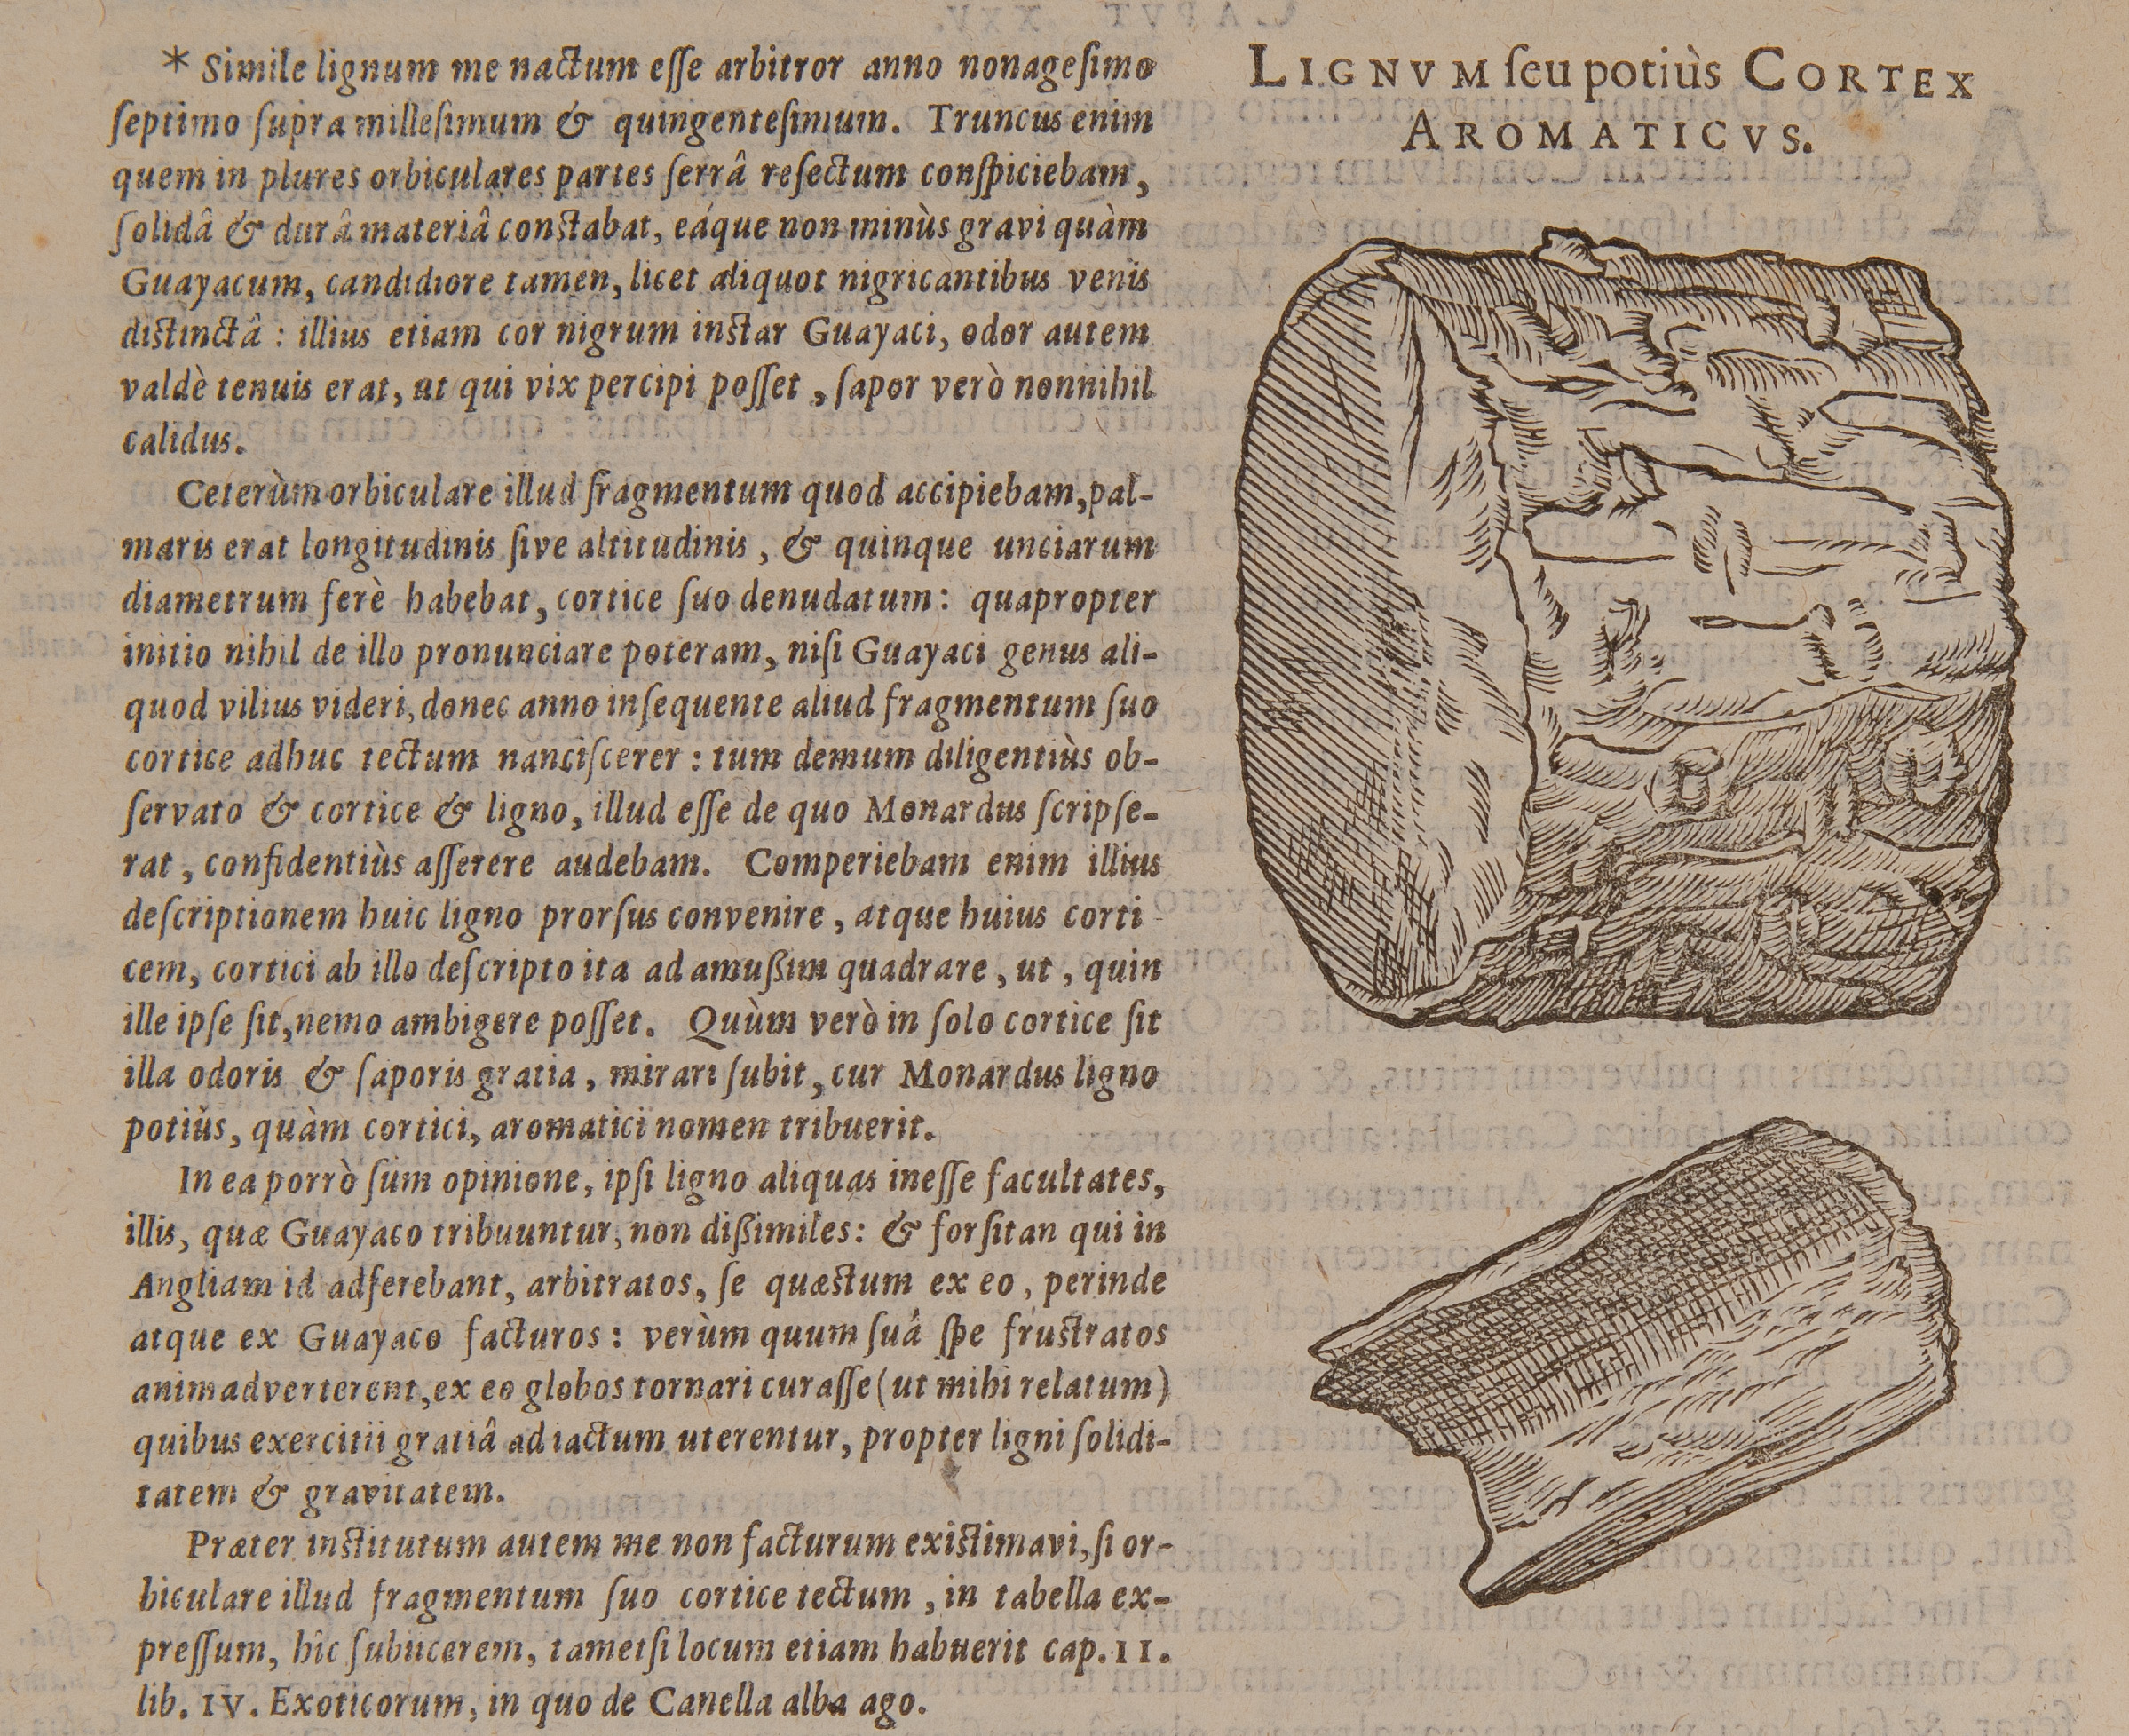 * Simile lignum me nactum eſſe arbitror anno nonageſimo
ſeptimo ſupra milleſimum & quingenteſimum. Truncus enim
quem in plures orbiculares partes ſerrâ reſectum conſpiciebam,
ſolidâ & durâ materiâ constabat, eáque non minùs gravi quàm
Guayacum, candidiore tamen, licet aliquot nigricantibus venis
distinctâ : illius etiam cor nigrum instar Guayaci, odor autem
valdè tenuis erat, ut qui vix percipi poſſet , ſapor verò nonnihil
calidus.
Ceterùm orbiculare illud fragmentum quod accipiebam, pal-
maris erat longitudinis ſive altitudinis , & quinque unciarum
diametrum ferè habebat, cortice ſuo denudatum: quapropter
initio nihil de illo pronunciare poteram, niſi Guayaci genus ali-
quod vilius videri, donec anno inſequente aliud fragmentum ſuo
cortice adhuc tectum nanciſcerer : tum demum diligentiùs ob-
ſervato & cortice & ligno, illud eſſe de quo Monardus ſcripſe-
rat , confidentiùs aſſerere audebam. Comperiebam enim illius
deſcriptionem huic ligno prorſus convenire , atque huius corti-
cem, cortici ab illo deſcripto ita ad amußim quadrare , ut , quin
ille ipſe ſit, nemo ambigere poſſet. Quùm verò in ſolo cortice ſit
illa odoris & ſaporis gratia , mirari ſubit, cur Monardus ligno
potiùs, quàm cortici, aromatici nomen tribuerit.
In ea porrò ſum opinione, ipſi ligno aliquas ineſſe facultates,
illis, quæ Guayaco tribuuntur, non dißimiles: & forſitan qui in
Angliam id adferebant, arbitratos, ſe quæstum ex eo , perinde
atque ex Guayaco facturos : verùm quum ſuâ ſpe frustratos
animadverterent, ex eo globos tornari curaſſe (ut mihi relatum)
quibus exercitii gratiâ ad iactum uterentur, propter ligni ſolidi-
tatem & gravitatem.
Præter institutum autem me non facturum existimavi, ſi or-
biculare illud fragmentum ſuo cortice tectum , in tabella ex-
preſſum, hîc ſubiicerem, tametſi locum etiam habuerit cap. II.
lib. IV. Exoticorum, in quo de Canella alba ago.
LIGNVM ſeu potiùs CORTEX
AROMATICVS.